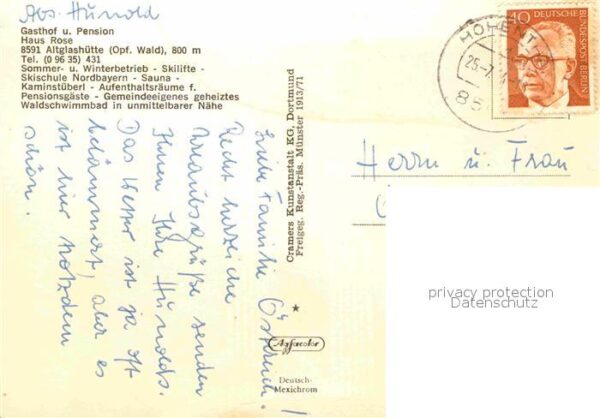 Abs. Hunold
Gasthof u. Pension
Haus Rose
8591 Altglashütte (Opf. Wald), 800 m
Tel. (0 96 35) 431
Sommer- u. Winterbetrieb - Skilifte -
Skischule Nordbayern - Sauna -
Kaminstüberl - Aufenthaltsräume f.
Pensionsgäste - Gemeindeeigenes geheiztes
Waldschwimmbad in unmittelbarer Nähe
Liebe Familie
Recht herzliche
Urlaubsgrüße senden
Ihnen Ihre Hunolds.
Das Wetter ist ja oft
bedämmert, aber es
ist hier trotzdem
schön.
Cramers Kunstanstalt KG, Dortmund
Freigeg. Reg.-Präs. Münster 1913/71
Agfacolor
Deutsch-
Mexichrom
40 DEUTSCHE
BUNDESPOST BERLIN
Herrn u. Frau
privacy protection
Datenschutz